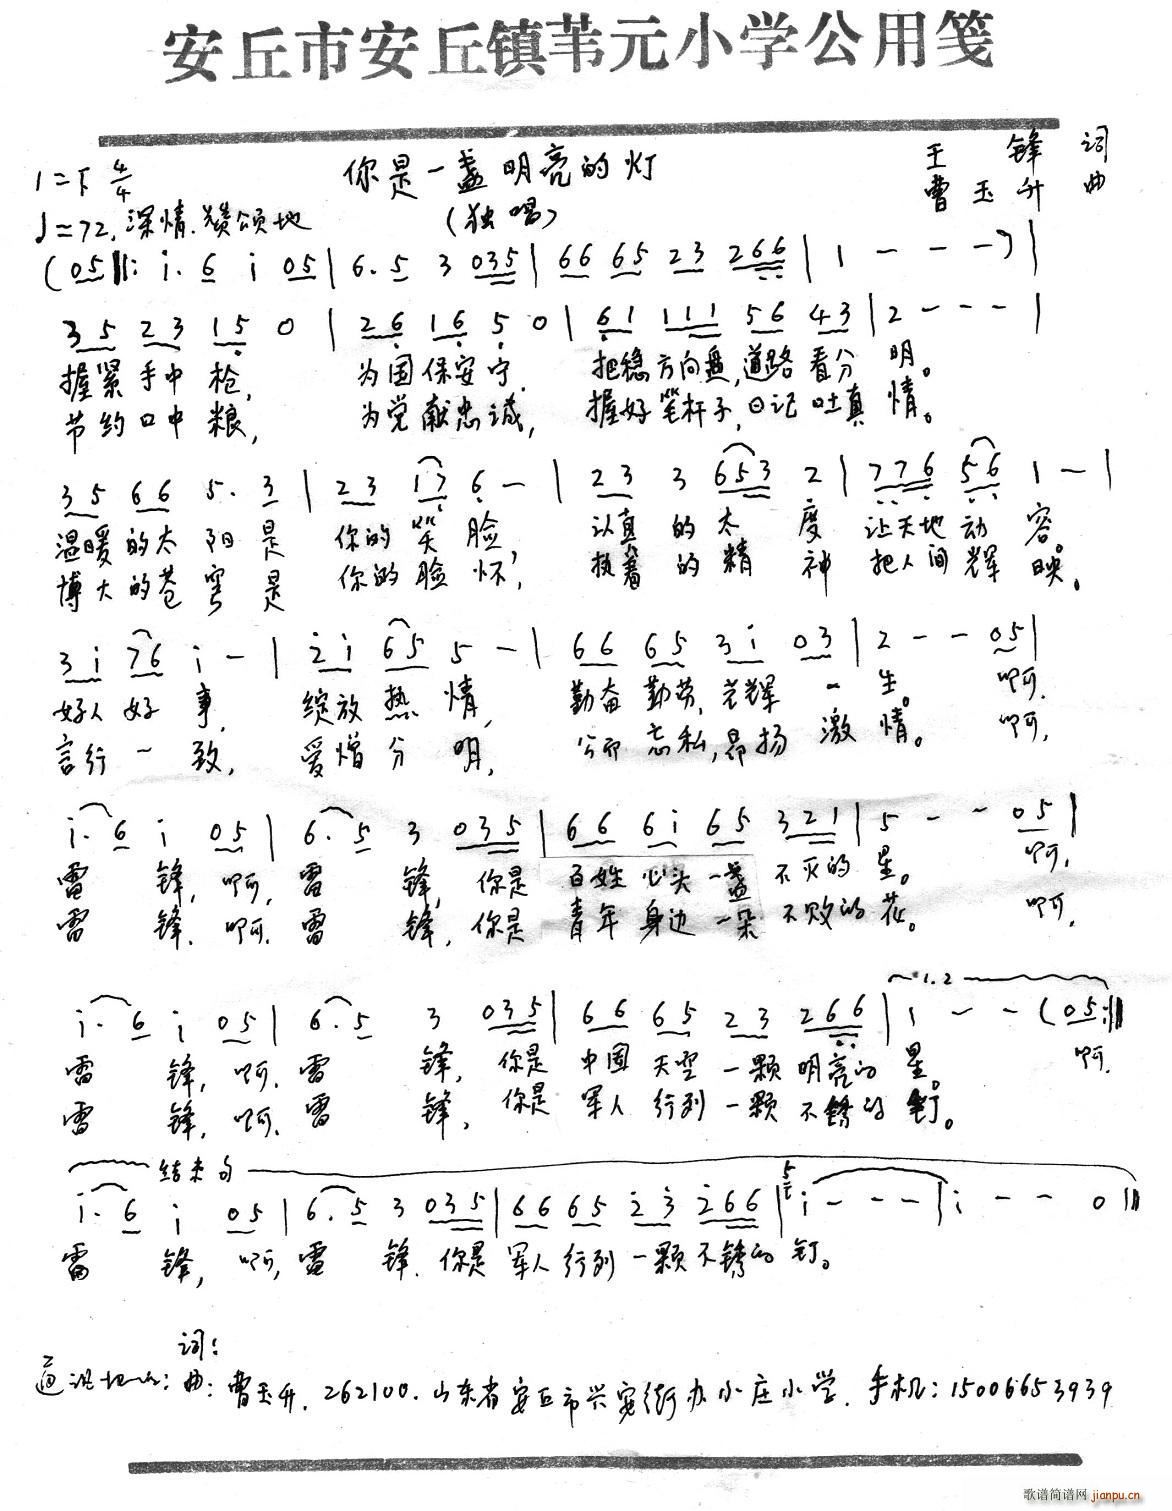 安丘市安丘镇苇元小学公用笺
1=F 4/4 你是一盏明亮的灯 王锋 词
♩=72, 深情、赞颂地 (独唱) 曹玉升 曲
(05‖: i. 6 i 05 | 6. 5 3 035 | 66 65 23 266 | 1 - - -) |
35 23 15 0 | 26 16 5 0 | 61 111 56 43 | 2 - - - |
握紧手中枪, 为国保安宁, 把稳方向盘,道路看分明。
节约口中粮, 为党献忠诚, 握好笔杆子,日记吐真情。
35 66 5. 3 | 23 17 6 - | 23 3 653 2 | 776 56 1 - |
温暖的太阳是 你的笑脸, 认真的太度 让天地动容。
博大的苍穹是 你的脸怀, 执着的精神 把人间辉映。
3i 76 i - | 2i 65 5 - | 66 65 3i 03 | 2 - - 05 |
好人好事, 绽放热情, 勤奋勤劳,光辉一生。 啊,
言行一致, 爱憎分明, 公而忘私,昂扬激情。 啊,
i. 6 i 05 | 6. 5 3 035 | 66 6i 65 321 | 5 - - 05 |
雷锋,啊,雷锋,你是百姓心头一盏不灭的星。 啊,
雷锋,啊,雷锋,你是青年身边一朵不败的花。 啊,
1.2
i. 6 i 05 | 6. 5 3 035 | 66 65 23 266 | 1 - - (05:‖
雷锋,啊,雷锋,你是中国天空一颗明亮的星。 啊,
雷锋,啊,雷锋,你是军人行列一颗不锈的钉。
结束句
i. 6 i 05 | 6. 5 3 035 | 66 65 23 266 | 5 i - - - | i - - 0 ‖
雷锋,啊,雷锋,你是军人行列一颗不锈的钉。
词:
通讯地址: 曲:曹玉升. 262100. 山东省安丘市兴安街办小庄小学. 手机:15006653939
歌谱简谱网 jianpu.cn